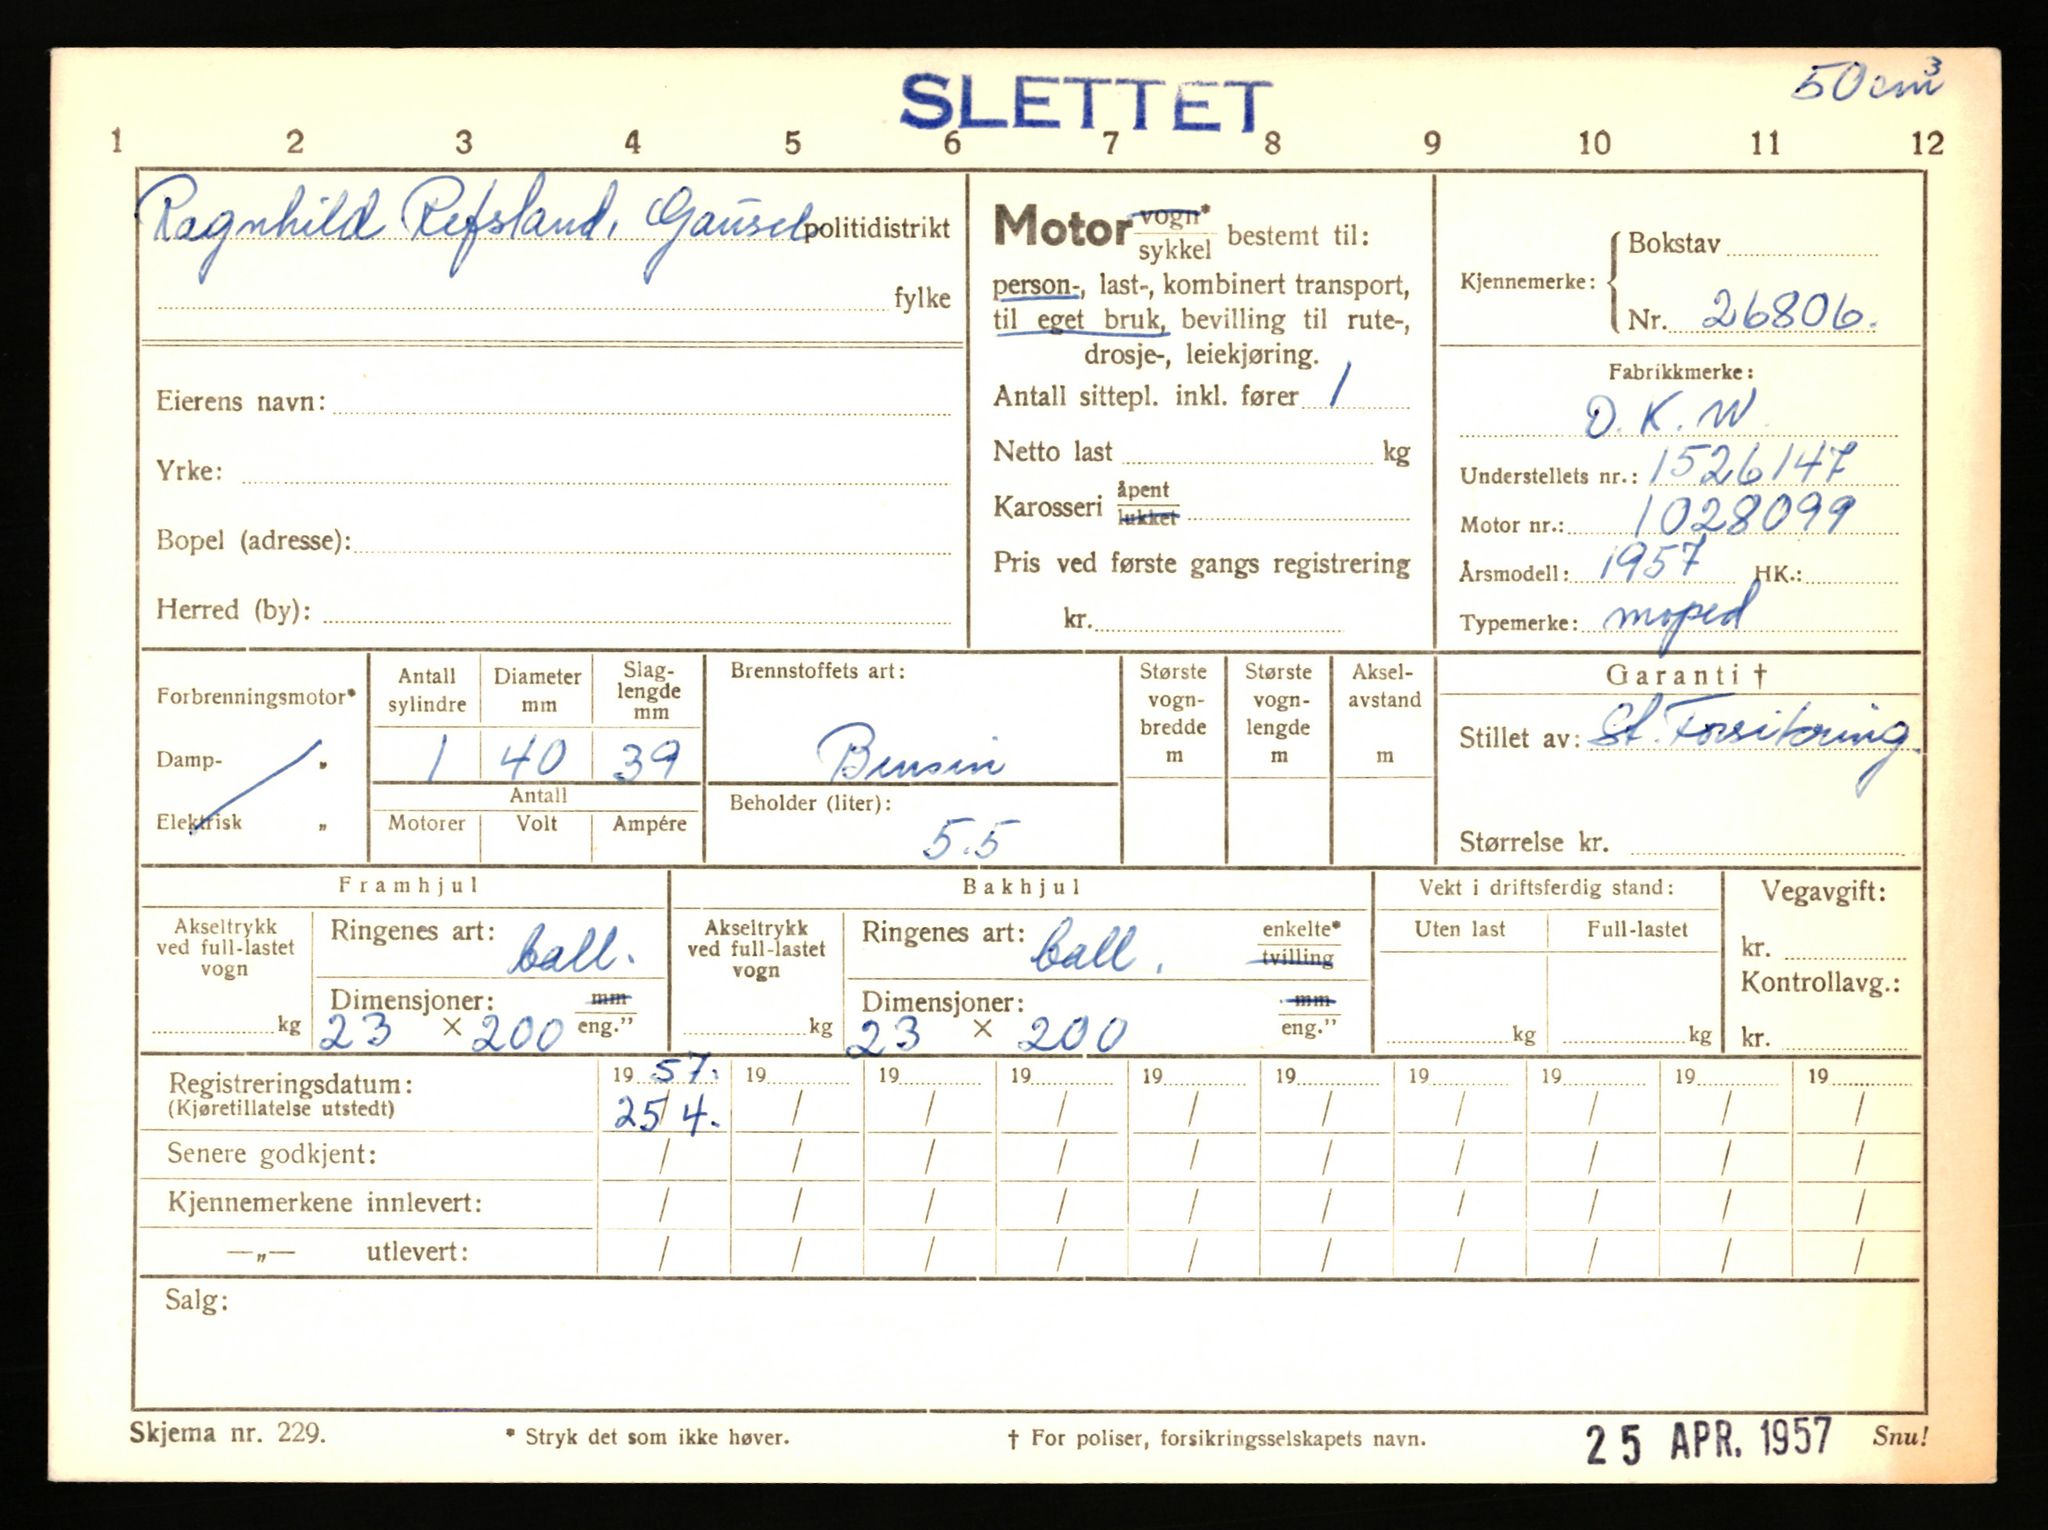 SLETTET
50 cm³
1 2 3 4 5 6 7 8 9 10 11 12
Ragnhild Refsland, Gausel politidistrikt
fylke
Eierens navn:
Yrke:
Bopel (adresse):
Herred (by):
Motor vogn* / sykkel bestemt til:
person-, last-, kombinert transport,
til eget bruk, bevilling til rute-,
drosje-, leiekjøring.
Antall sittepl. inkl. fører 1
Netto last kg
Karosseri åpent / lukket
Pris ved første gangs registrering
kr.
Kjennemerke: Bokstav
Nr. 26806.
Fabrikkmerke:
D. K. W.
Understellets nr.: 1526147
Motor nr.: 1028099
Årsmodell: 1957 HK.:
Typemerke: moped
Forbrenningsmotor*
Damp- „
Elektrisk „
Antall sylindre Diameter mm Slag-lengde mm
1 40 39
Antall
Motorer Volt Ampére
Brennstoffets art:
Bensin
Beholder (liter):
5.5
Største vogn-bredde m
Største vogn-lengde m
Aksel-avstand m
Garanti †
Stillet av: St. Forsikring.
Størrelse kr.
Framhjul
Akseltrykk ved full-lastet vogn
kg
Ringenes art: ball.
Dimensjoner: mm / eng.”
23 × 200
Bakhjul
Akseltrykk ved full-lastet vogn
kg
Ringenes art: ball. enkelte* / tvilling
Dimensjoner: mm / eng.”
23 × 200
Vekt i driftsferdig stand:
Uten last Full-lastet
kg kg
Vegavgift:
kr.
Kontrollavg.:
kr.
Registreringsdatum: 19 57. 19 19 19 19 19 19 19 19 19
(Kjøretillatelse utstedt) 25/4. / / / / / / / / /
Senere godkjent: / / / / / / / / / /
Kjennemerkene innlevert: / / / / / / / / / /
—„— utlevert: / / / / / / / / / /
Salg:
Skjema nr. 229. * Stryk det som ikke høver. † For poliser, forsikringsselskapets navn. 25 APR. 1957 Snu!